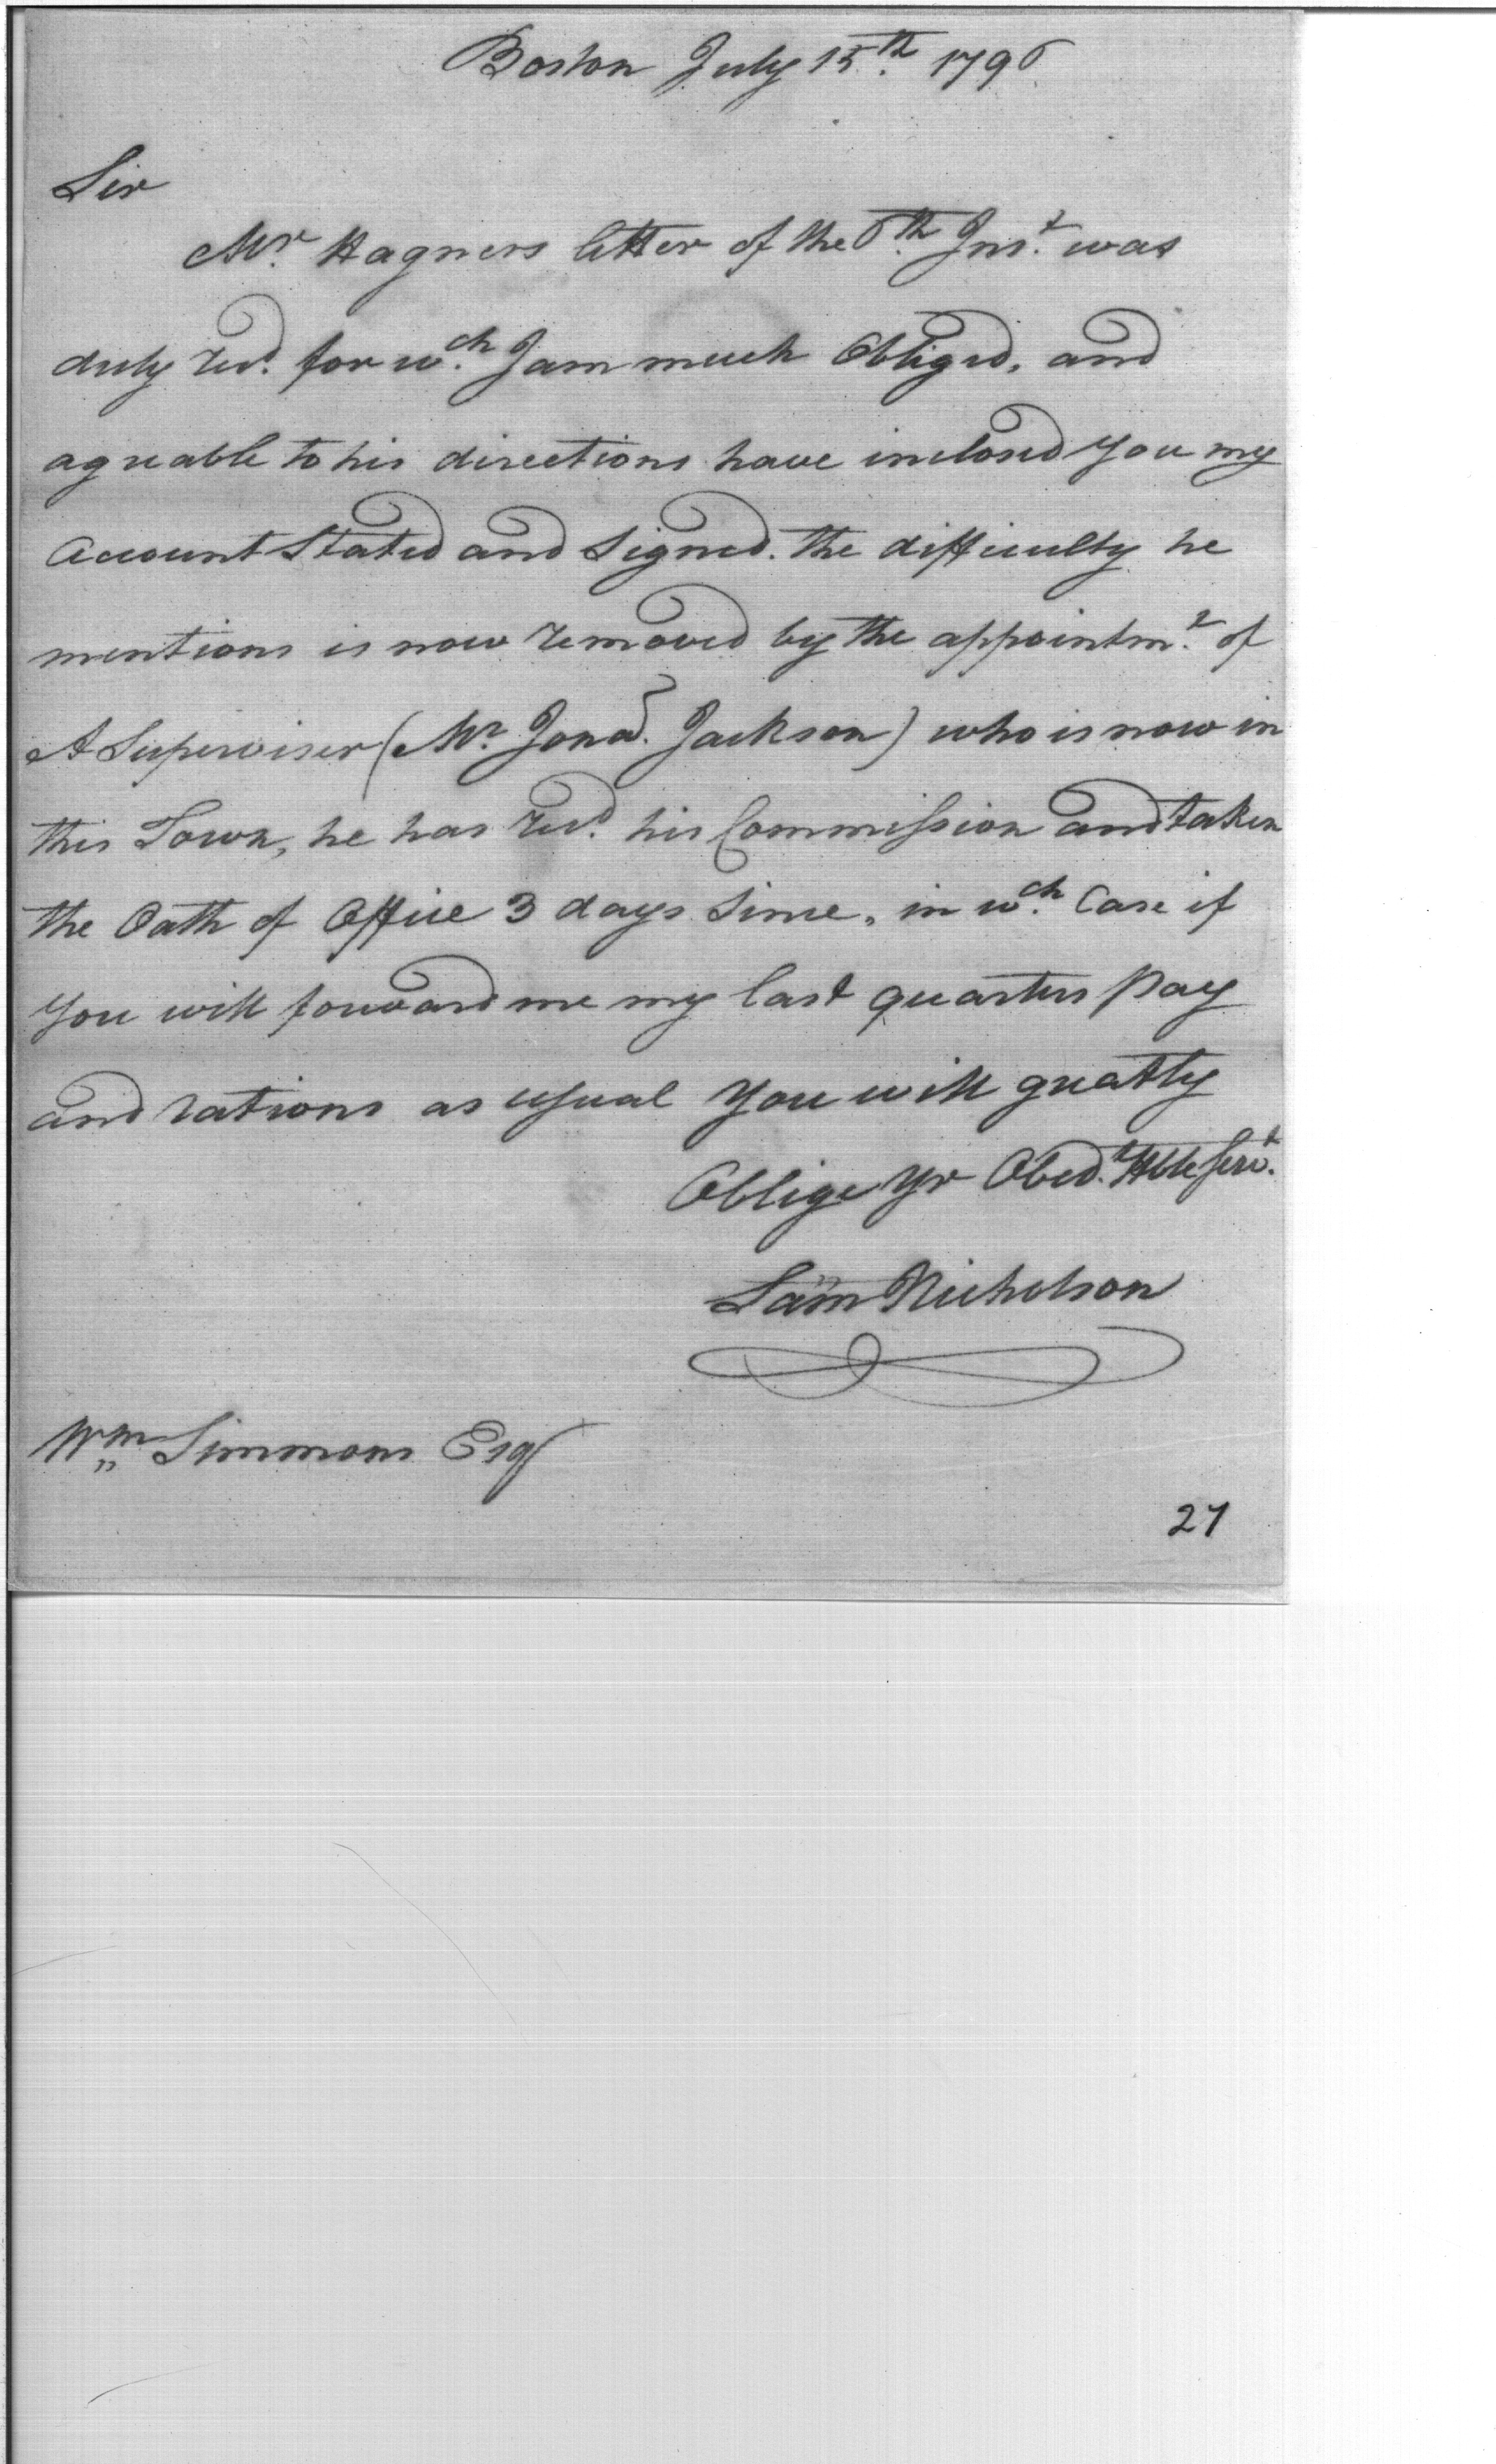 Boston July 15th. 1796
Sir
Mr. Hagners letter of the 6th. Inst. was
duly Recd. for wch. I am much Obliged, and
agreable to his directions have inclosed you my
Account Stated and Signed. the difficulty he
mentions is now removed by the appointmt. of
A Superviser (Mr. Jona. Jackson) who is now in
this Town, he has Recd. his Commission and taken
the Oath of Office 3 days Since, in wch. Case if
you will forward me my last quarters pay
and rations as usual you will greatly
Oblige yr Obedt. Hble Servt.
Sam Nicholson
Wm Simmons Esq
27